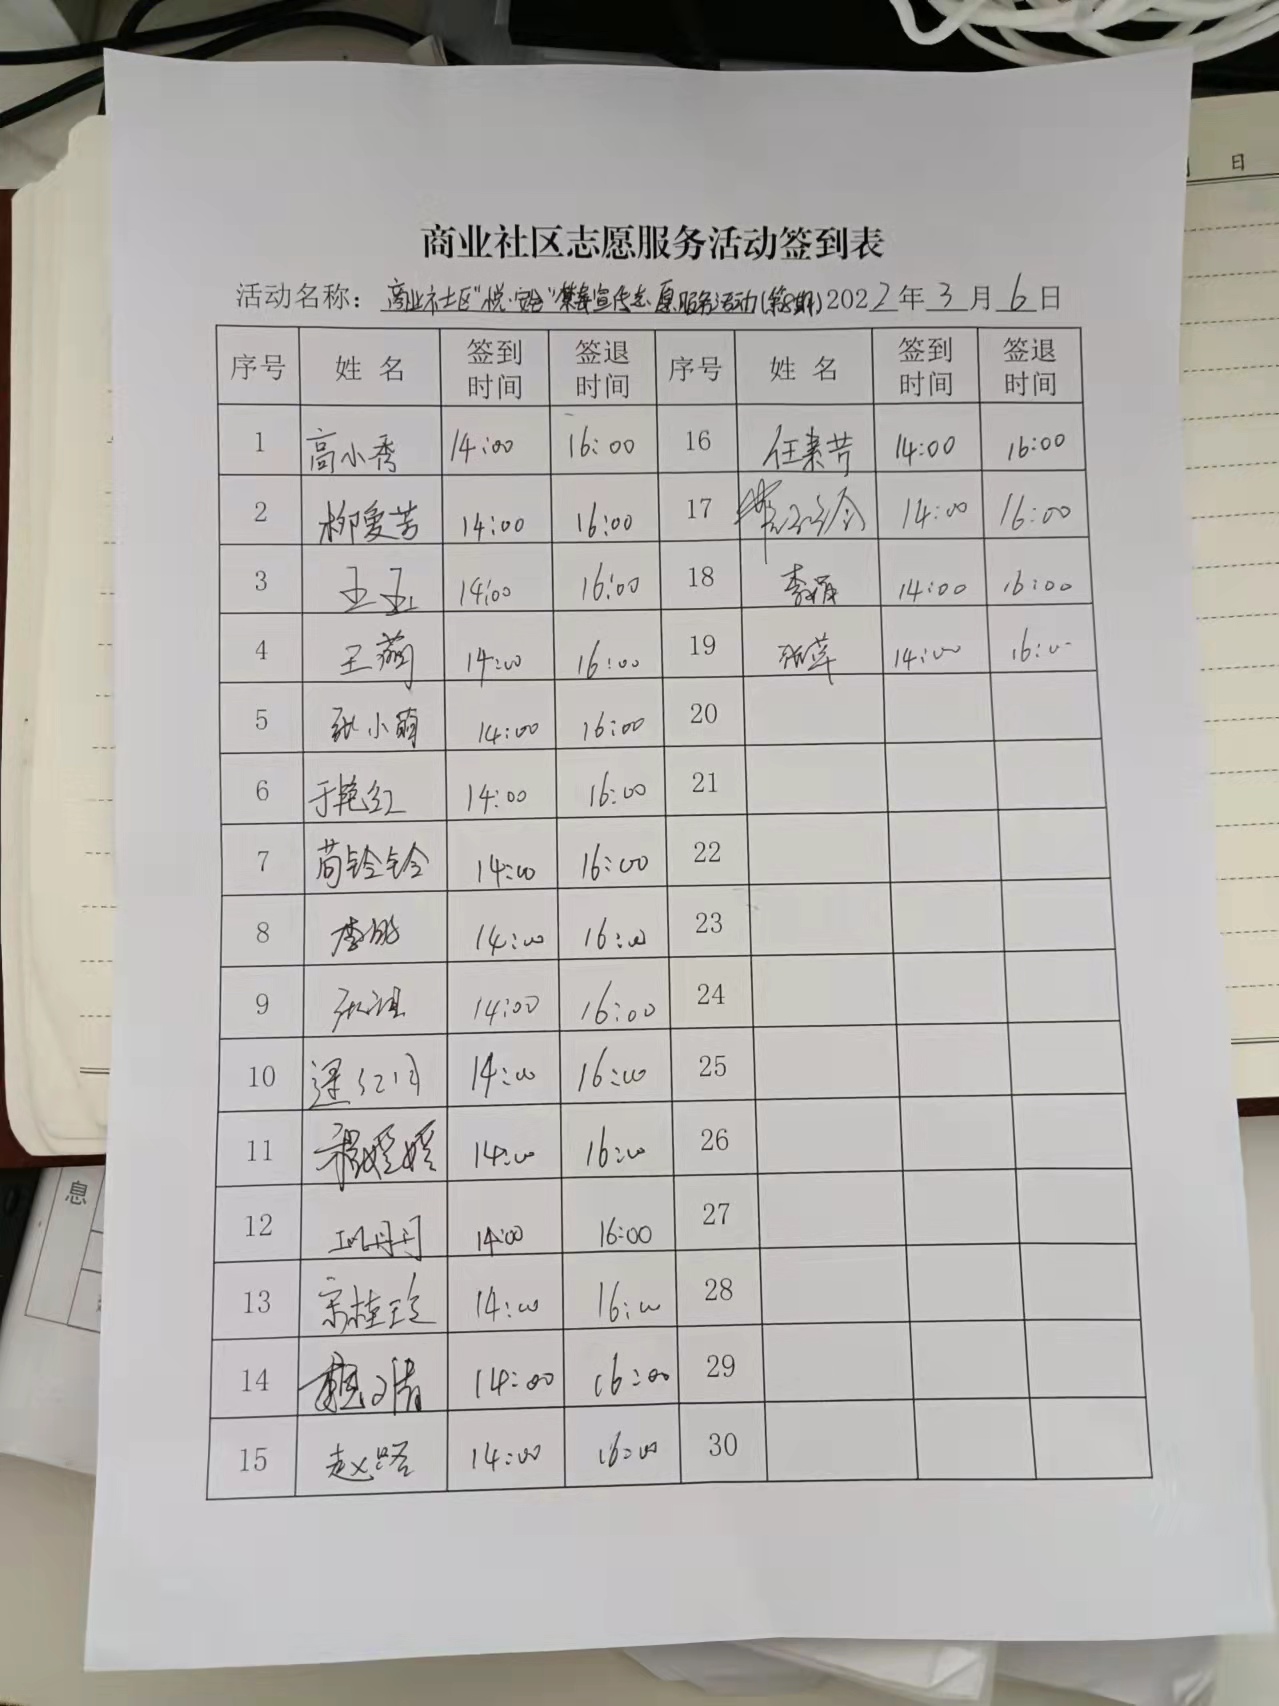 日
商业社区志愿服务活动签到表
活动名称：商业社区"悦·宣传志愿服务活动(第8期)2022年3月6日
序号 姓名 签到时间 签退时间 序号 姓名 签到时间 签退时间
1 高小秀 14:00 16:00 16 任素芳 14:00 16:00
2 柳爱芳 14:00 16:00 17 14:00 16:00
3 王玉 14:00 16:00 18 李 14:00 16:00
4 王菊 14:00 16:00 19 张萍 14:00 16:00
5 张小萌 14:00 16:00 20
6 于艳红 14:00 16:00 21
7 苟铃铃 14:00 16:00 22
8 李 14:00 16:00 23
9 张 14:00 16:00 24
10 梁红 14:00 16:00 25
11 14:00 16:00 26
12 丹丹 14:00 16:00 27
13 宗桂珍 14:00 16:00 28
14 14:00 16:00 29
15 赵路 14:00 16:00 30
息